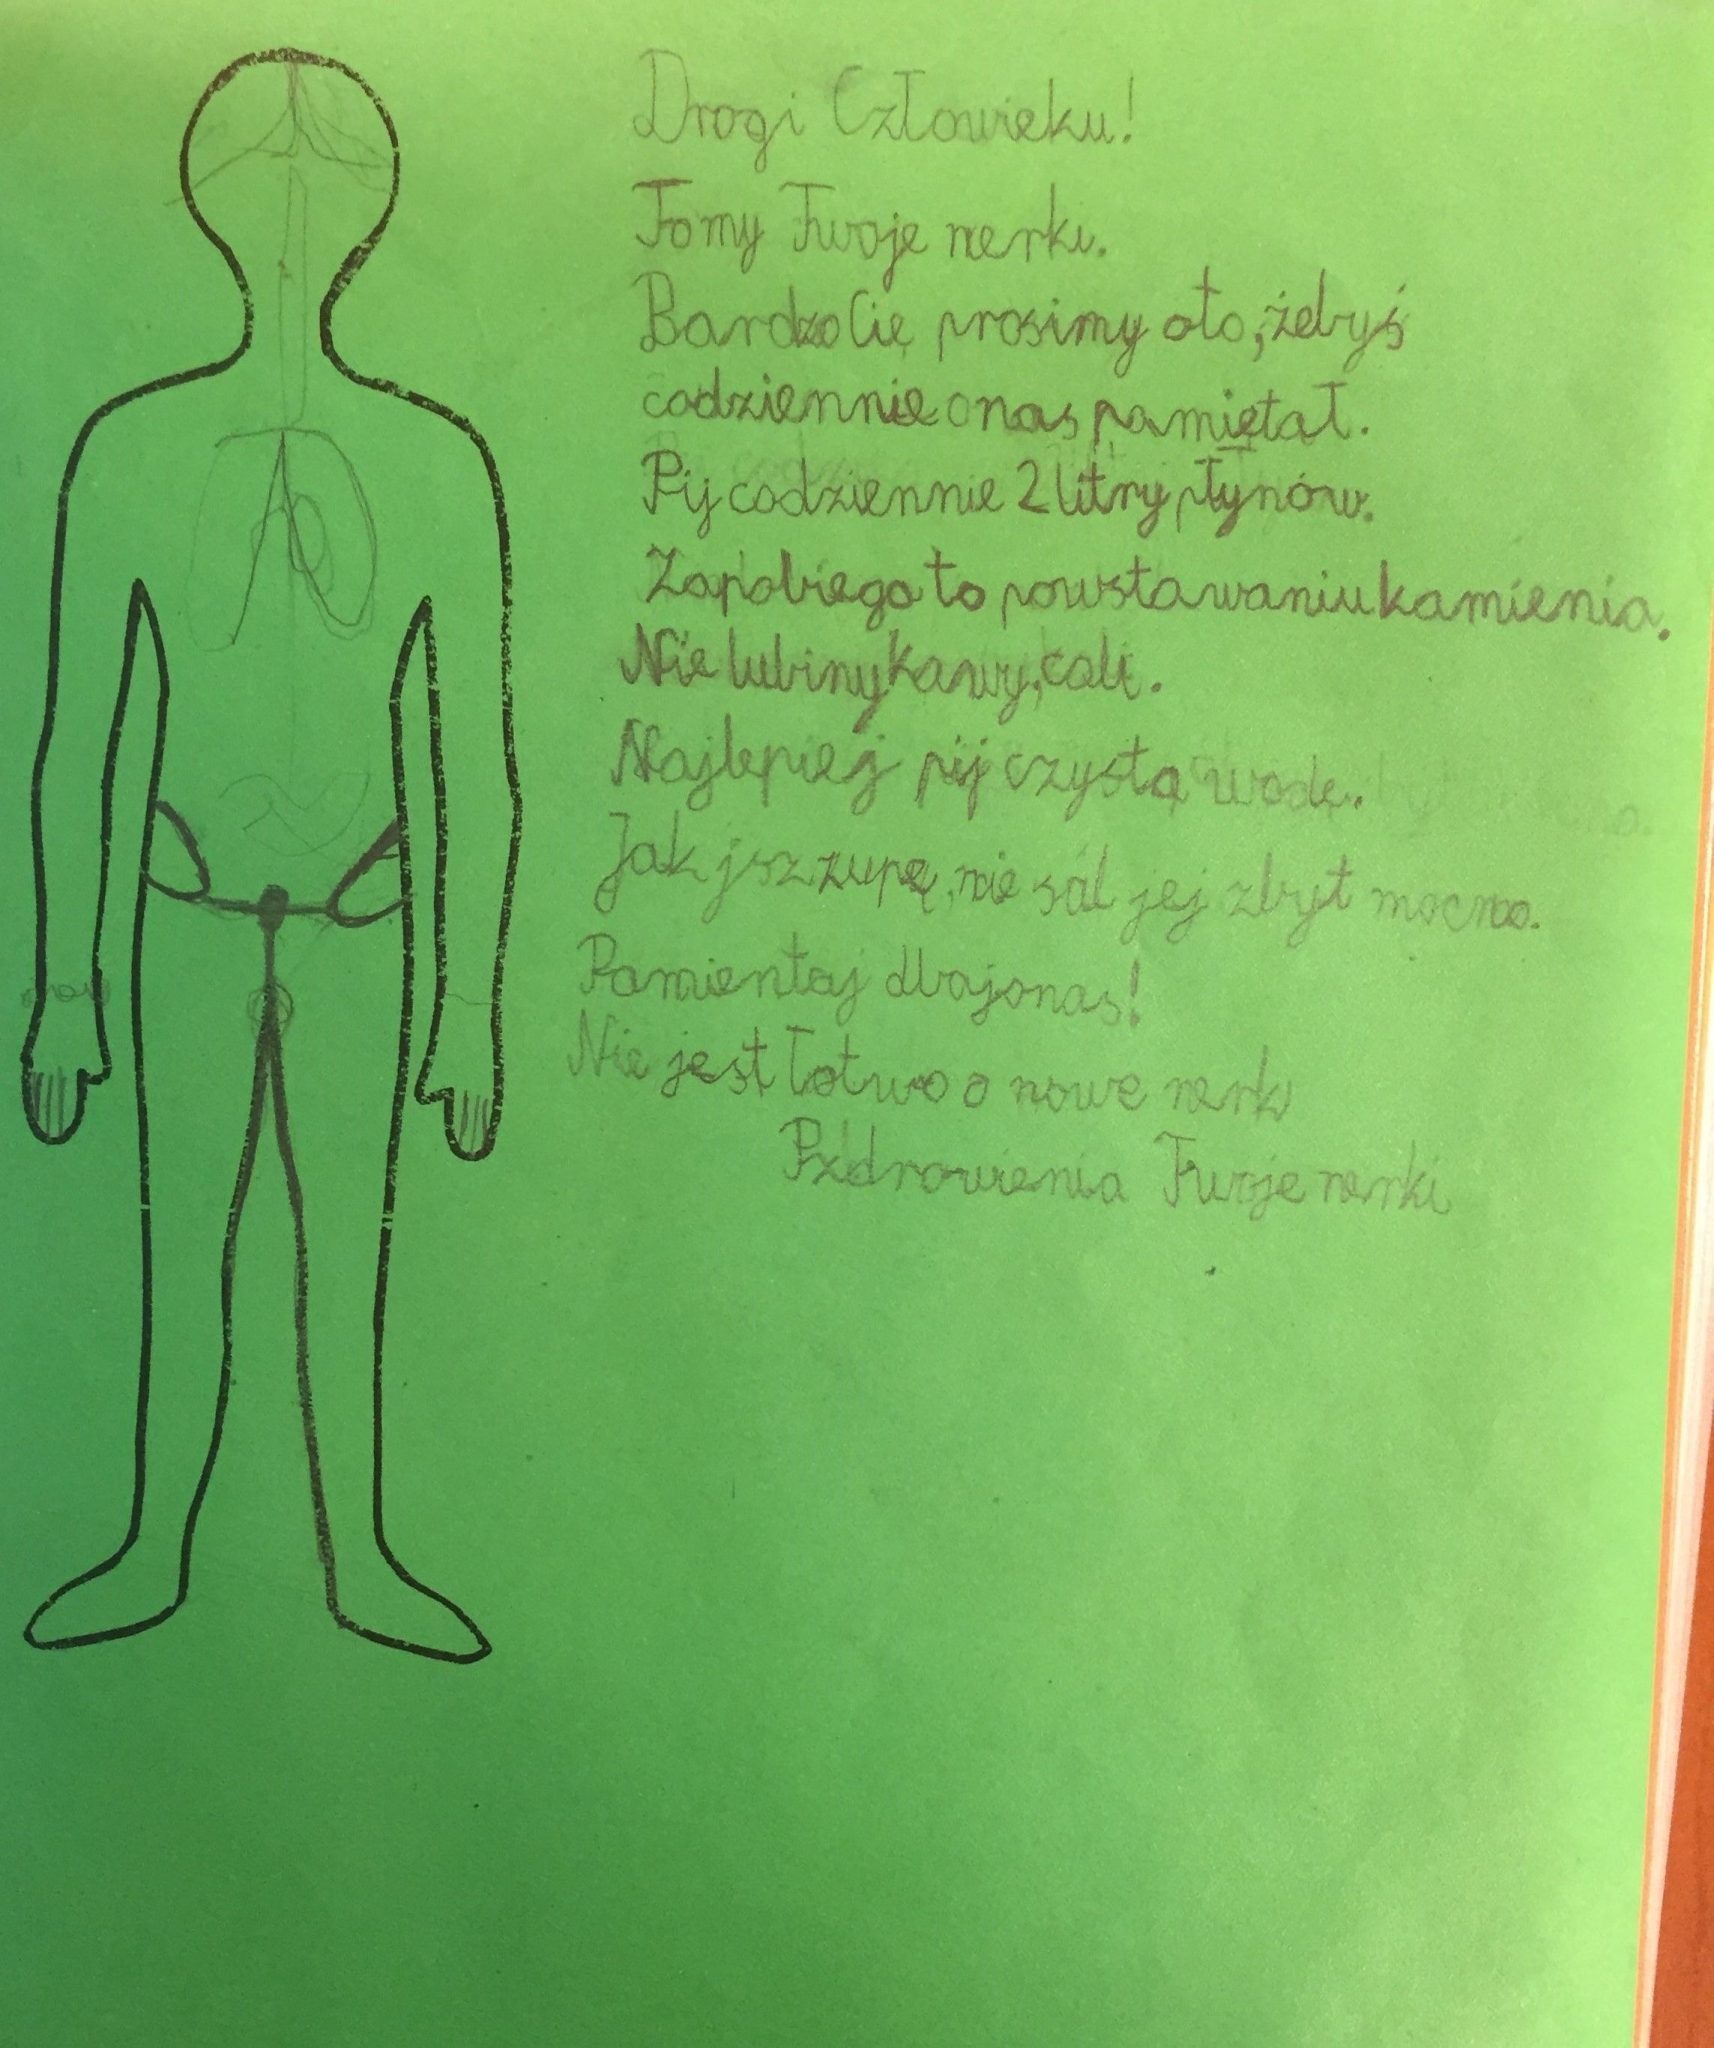 Drogi Człowieku!
To my Twoje nerki.
Bardzo Cię prosimy oto, żebyś
codziennie o nas pamiętał.
Pij codziennie 2 litry płynów.
Zapobiega to powstawaniu kamienia.
Nie lubimy kawy, coli.
Najlepiej pij czystą wodę.
Jak jesz zupę, nie sól jej zbyt mocno.
Pamientaj dbaj o nas!
Nie jest łatwo o nowe nerki
Pzdrowienia Twoje nerki